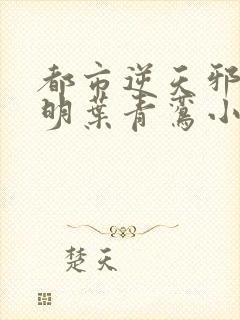 都市逆天邪
明葉青鸞小
楚天